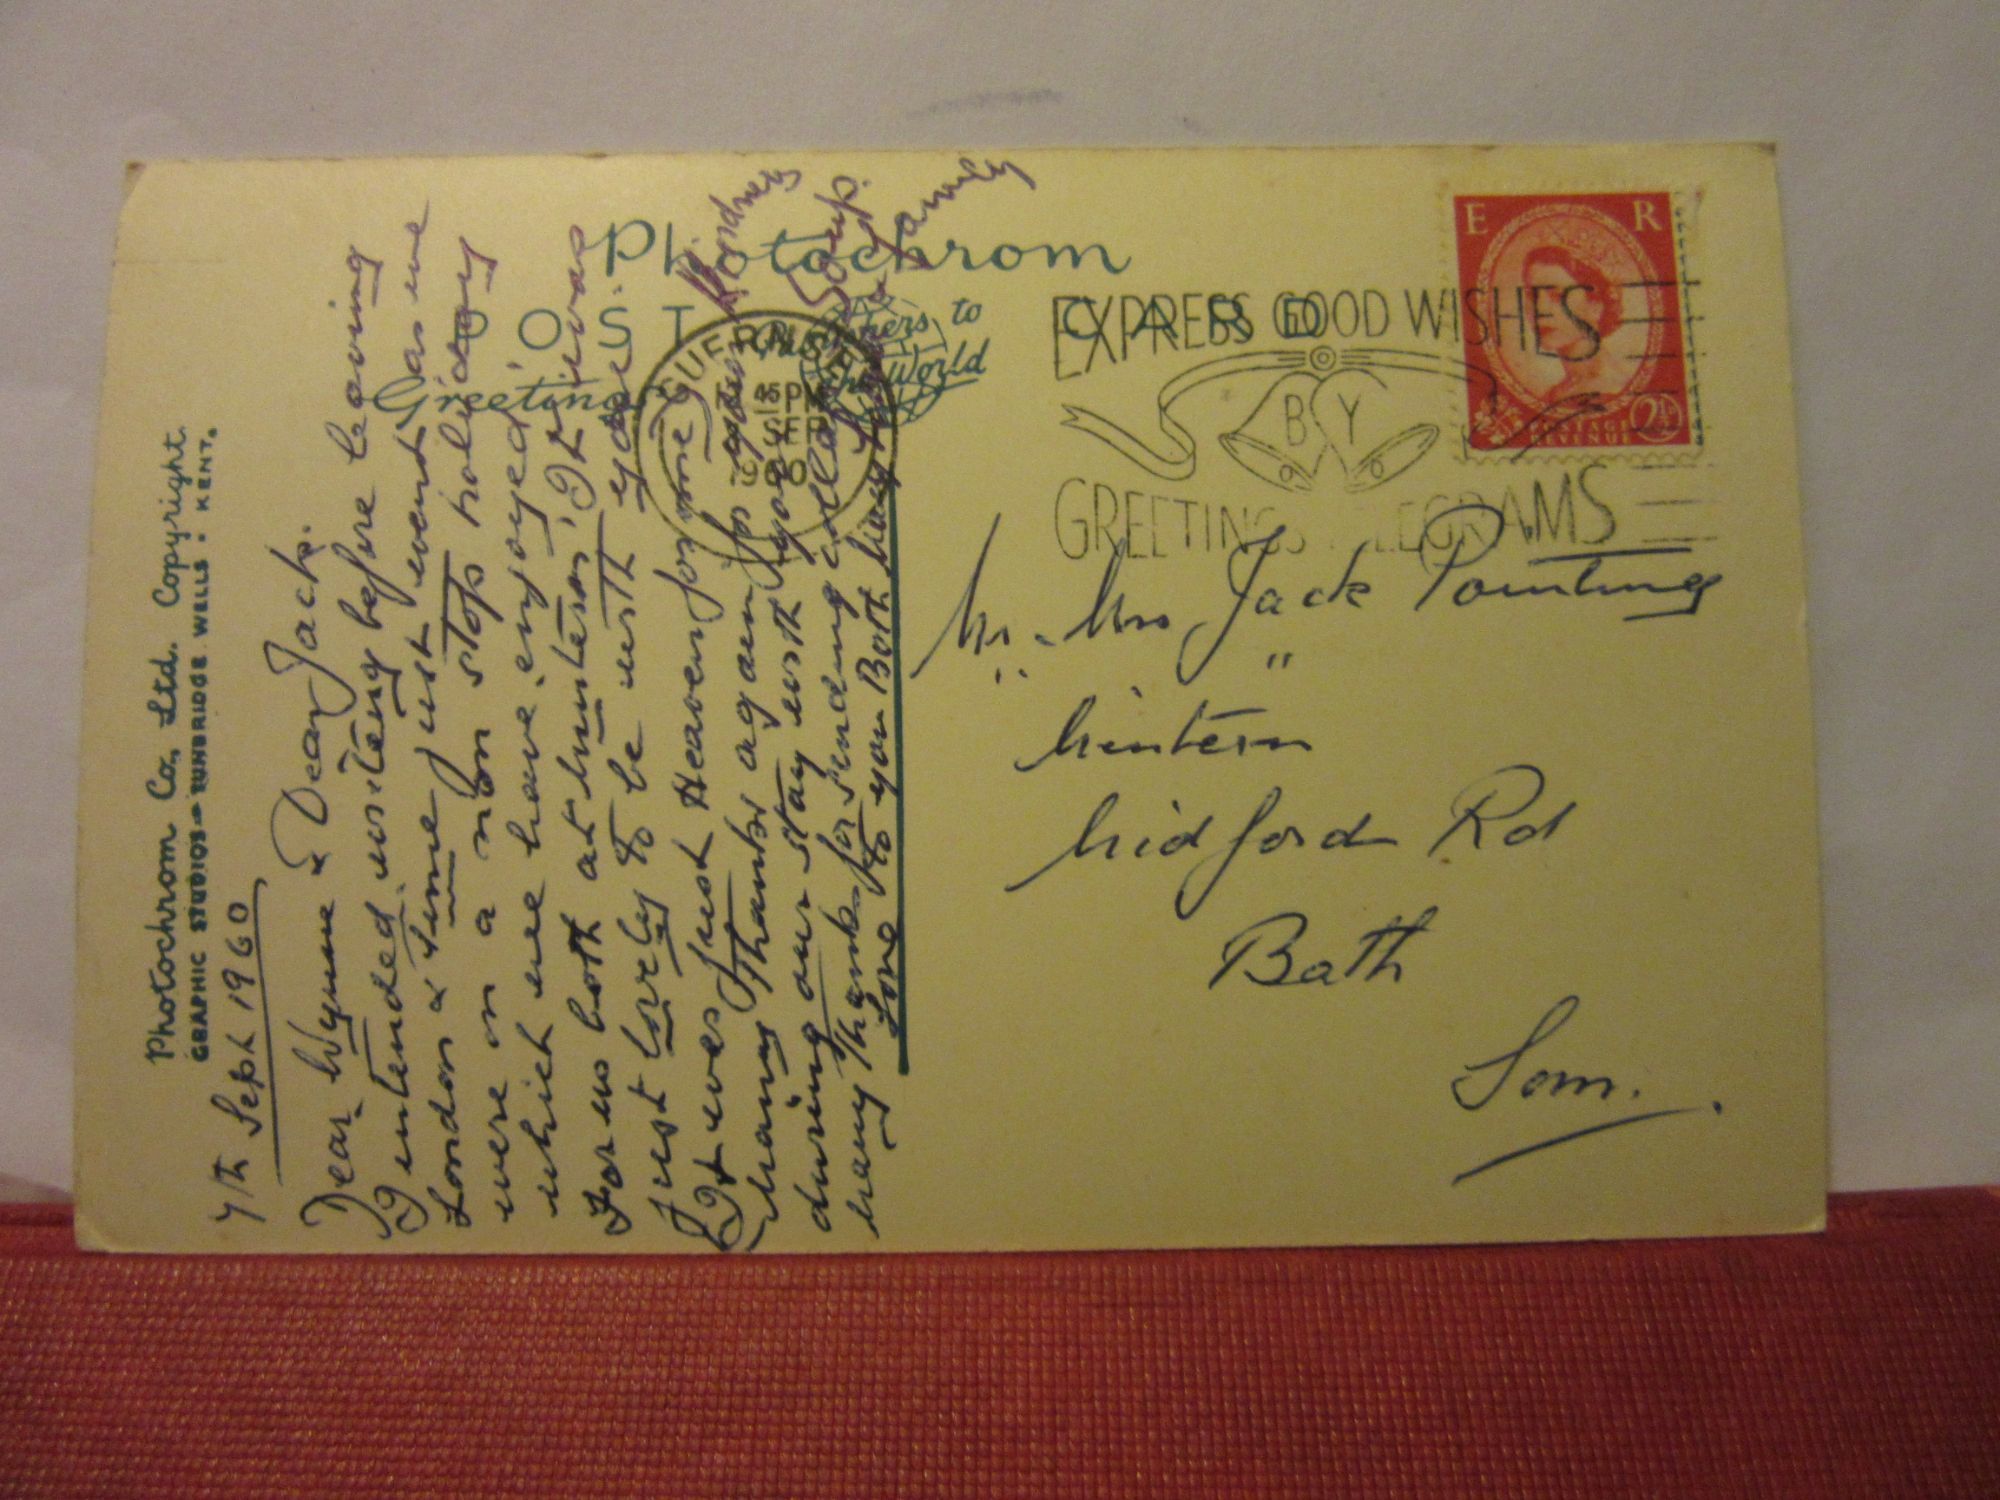 Photochrom Co., Ltd. Copyright.
GRAPHIC STUDIOS - TUNBRIDGE WELLS : KENT.
Photochrom
POST CARD
Greetings Publishers to
the World
GUERNSEY
45 PM
SEP
1960
EXPRESS GOOD WISHES
BY
GREETINGS TELEGRAMS
E R
POSTAGE
REVENUE
2½D
7th Sept 1960
Dear Wynne & Dear Jack.
I intended writing before leaving
London & time just went as we
were on a non stop holiday
which we have enjoyed
For us both at Mintern, It was
just lovely to be with you.
It was just Heaven for me.
Many Thanks again for your Kindness
during our stay with you
Many Thanks for sending
Love to you Both
Mr. Mrs Jack Pointing
" "
Mintern
Midford Rd
Bath
Som.